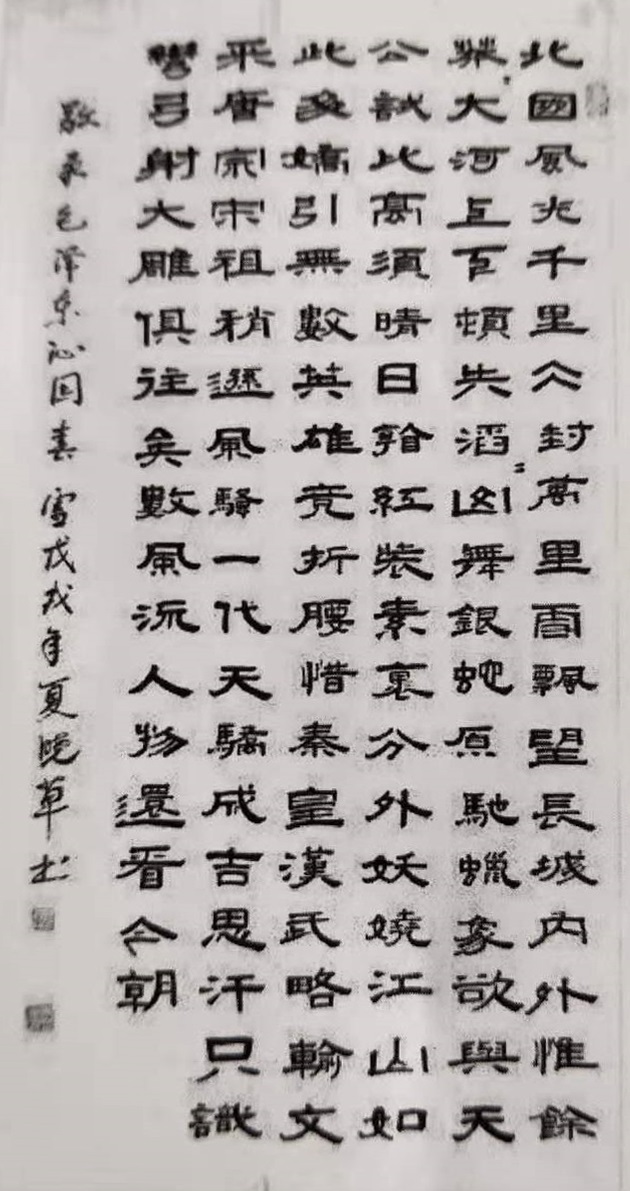 北國風光千里仌封萬里雪飄望長城内外惟餘
莽〻大河上下頓失滔〻山舞銀蛇原馳蠟象欲與天
公試比高須晴日看紅裝素裹分外妖嬈江山如
此多嬌引無數英雄竞折腰惜秦皇漢武略輸文
采唐宗宋祖稍遜風騷一代天驕成吉思汗只識
彎弓射大雕俱往矣數風流人物還看今朝
敬录毛泽东沁园春 雪戊戌年夏晚草书